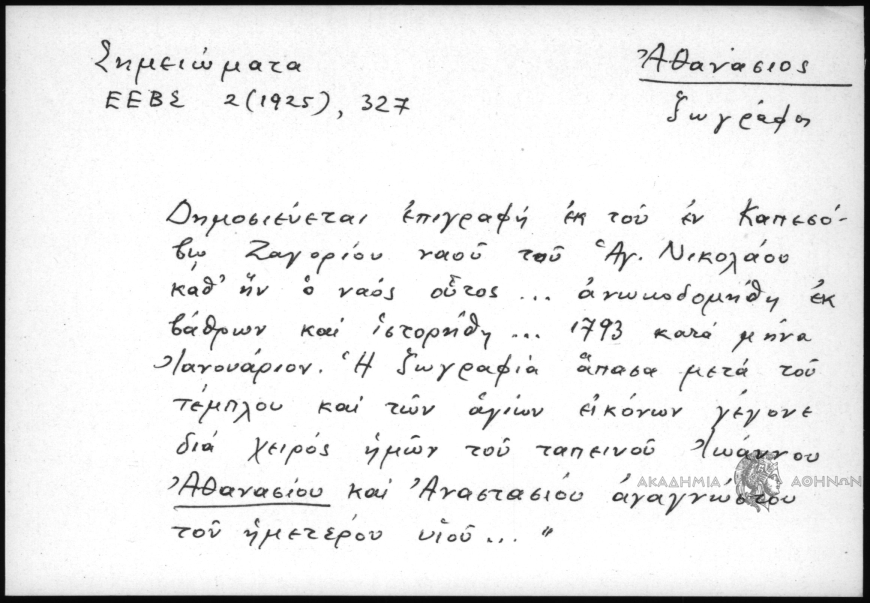 Σημειώματα
ΕΕΒΣ 2 (1925), 327
Ἀθανάσιος
ζωγράφος
Δημοσιεύεται ἐπιγραφή ἐκ τοῦ ἐν Καπεσό-
βῳ Ζαγορίου ναοῦ τοῦ Ἁγ. Νικολάου
καθ' ἥν ὁ ναός οὗτος ... ἀνωκοδομήθη ἐκ
βάθρων καί ἱστορήθη ... 1793 κατά μήνα
Ἰανουάριον. Ἡ ζωγραφία ἅπασα μετά τοῦ
τέμπλου καί τῶν ἁγίων εἰκόνων γέγονε
διά χειρός ἡμῶν τοῦ ταπεινοῦ Ἰωάννου
Ἀθανασίου καί Ἀναστασίου ἀναγνώστου
τοῦ ἡμετέρου υἱοῦ ... "
ΑΚΑΔΗΜΙΑ ΑΘΗΝΩΝ